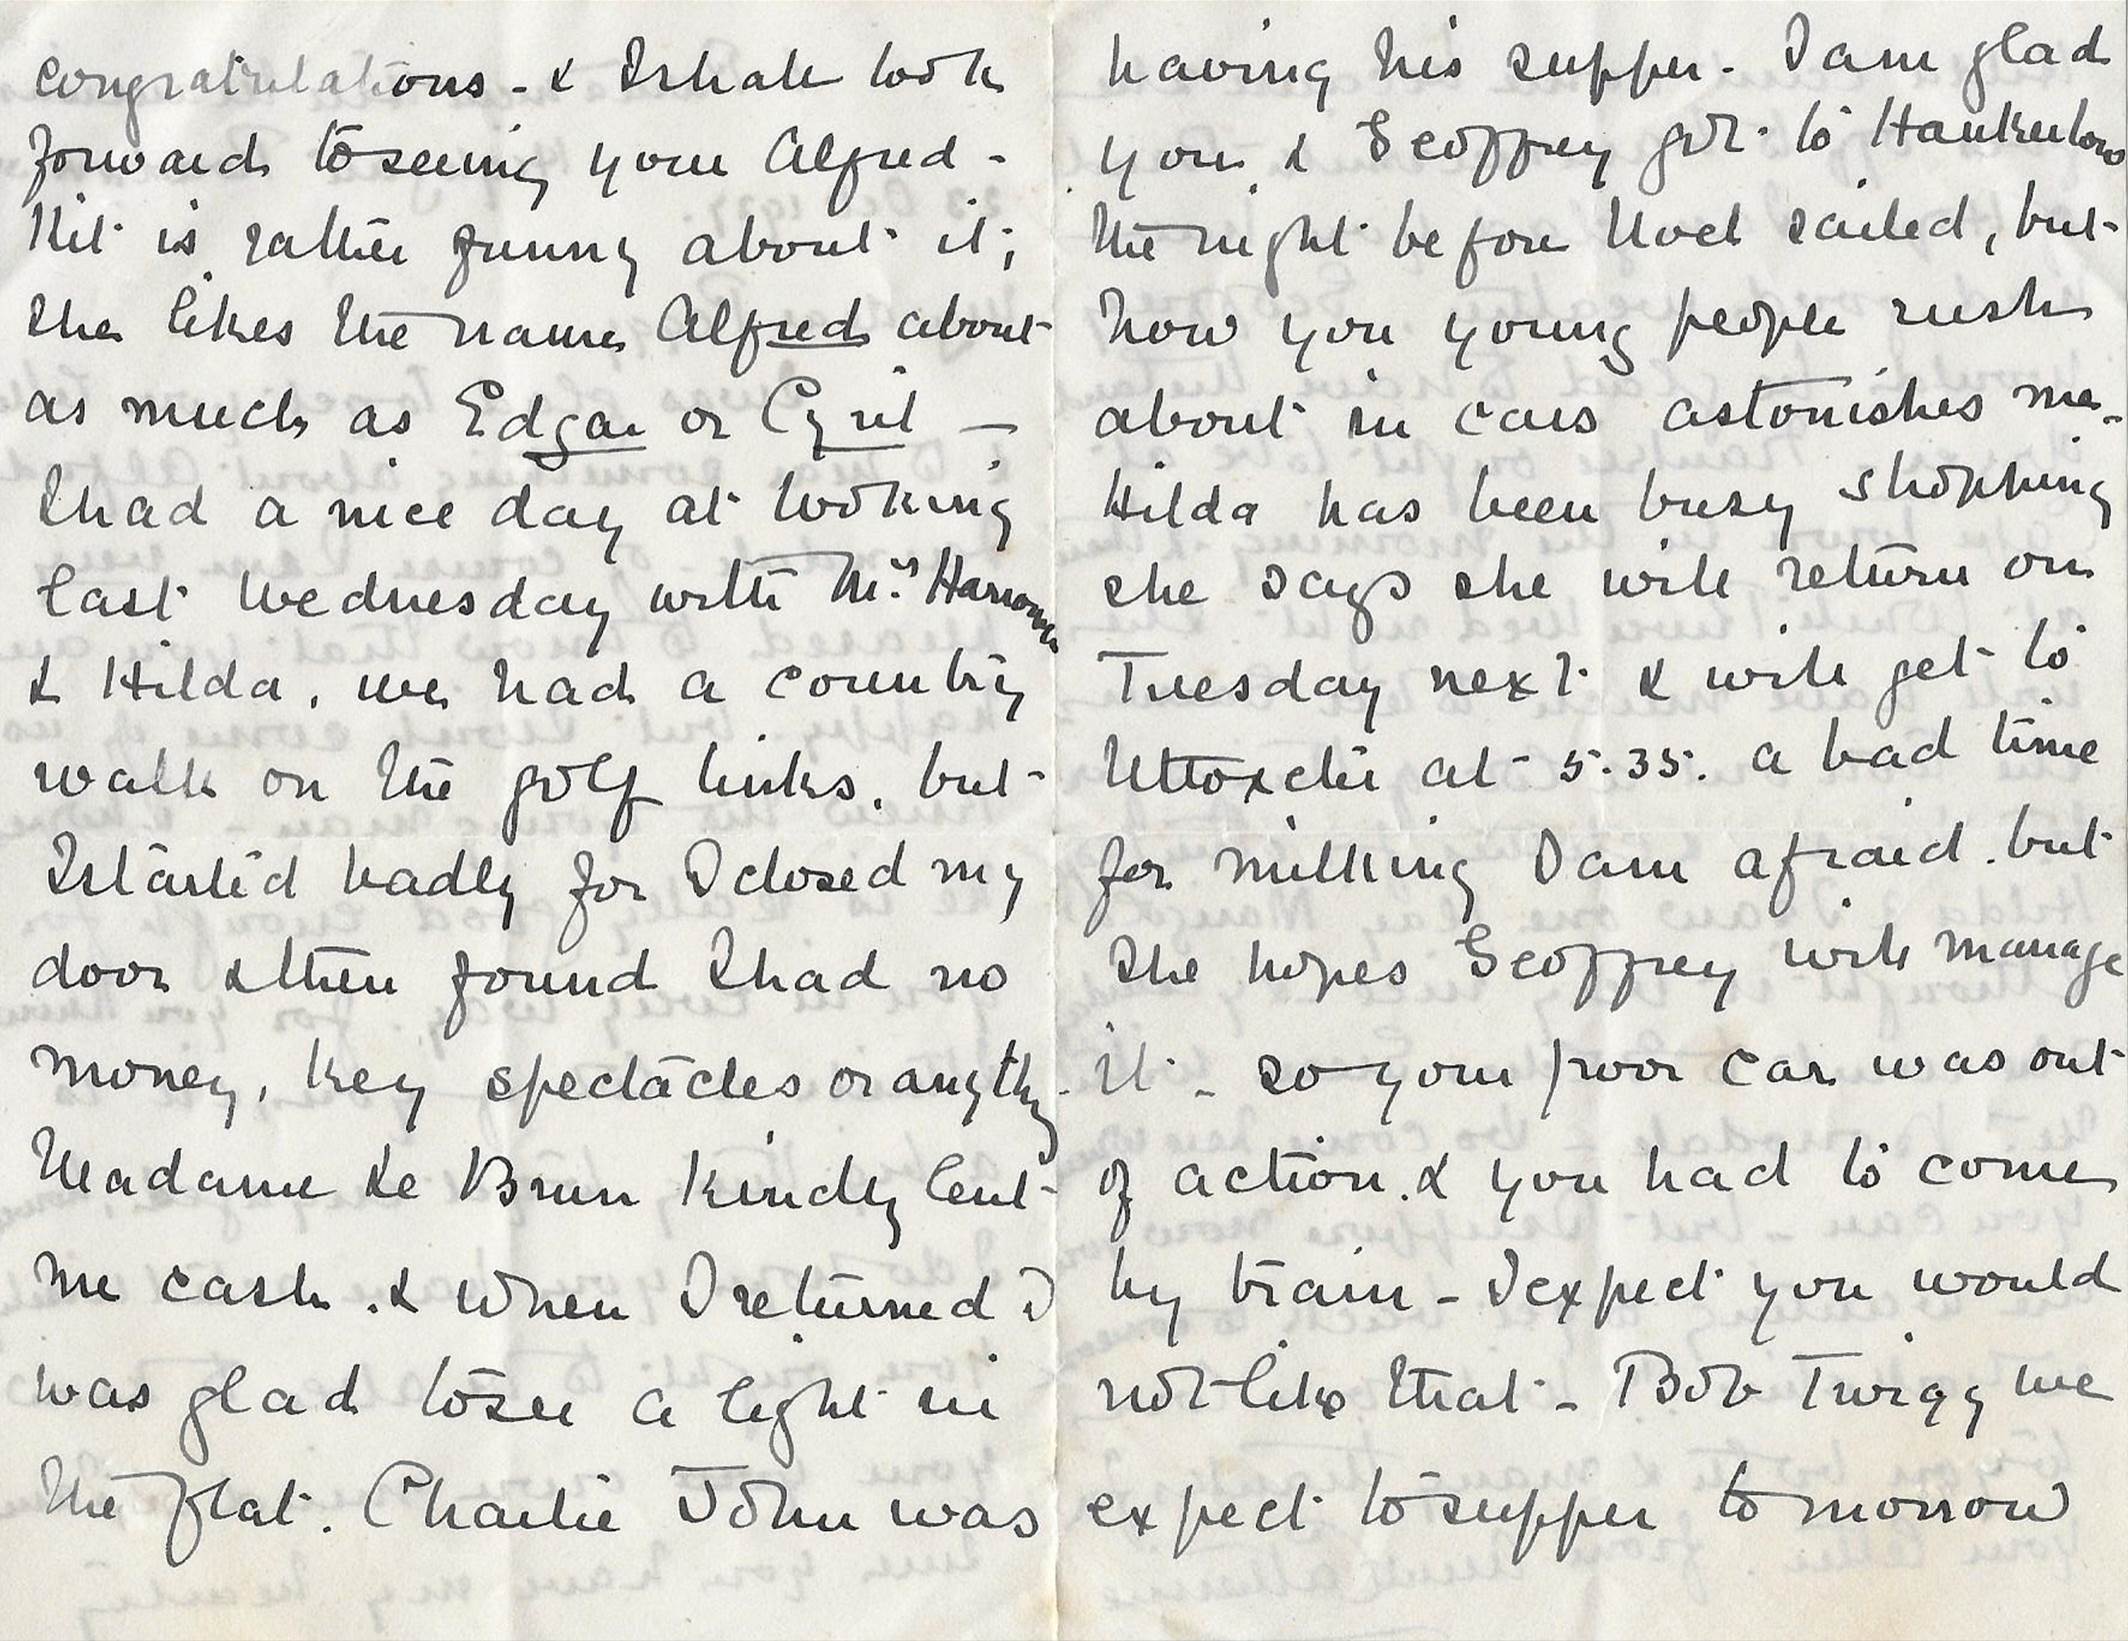 congratulations - & I shall look
forward to seeing your Alfred -
Kit is rather funny about it;
she likes the name Alfred about
as much as Edgar or Cyril —
I had a nice day at Woking
last Wednesday with Mrs
& Hilda, we had a country
walk on the golf links, but
I started badly for I closed my
door & then found I had no
money, key spectacles or anythg
Madame Le Brun kindly lent
me cash. & when I returned I
was glad to see a light in
the flat. Charlie John was
having his supper. I am glad
you & Geoffrey got to Hankelow
the night before Noel sailed, but
how you young people rush
about in cars astonishes me -
Hilda has been busy shopping
she says she will return on
Tuesday next & will get to
Uttoxeter at 5.35. a bad time
for milking I am afraid. but
she hopes Geoffrey will manage
it - so your poor car was out
of action. & you had to come
by train - I expect you would
not like that - Bob Twigg we
expect to supper tomorrow